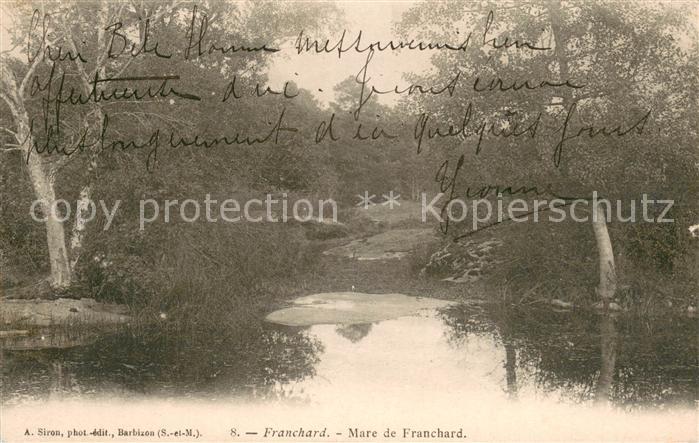 Cheri Bele Homme mettouvenir bien
affectueux d'ici. Je vous écrirai
plus longuement d'ici quelques jours
Yvonne
copy protection ** Kopierschutz
A. Siron, phot.-édit., Barbizon (S.-et-M.). 8. — Franchard. - Mare de Franchard.